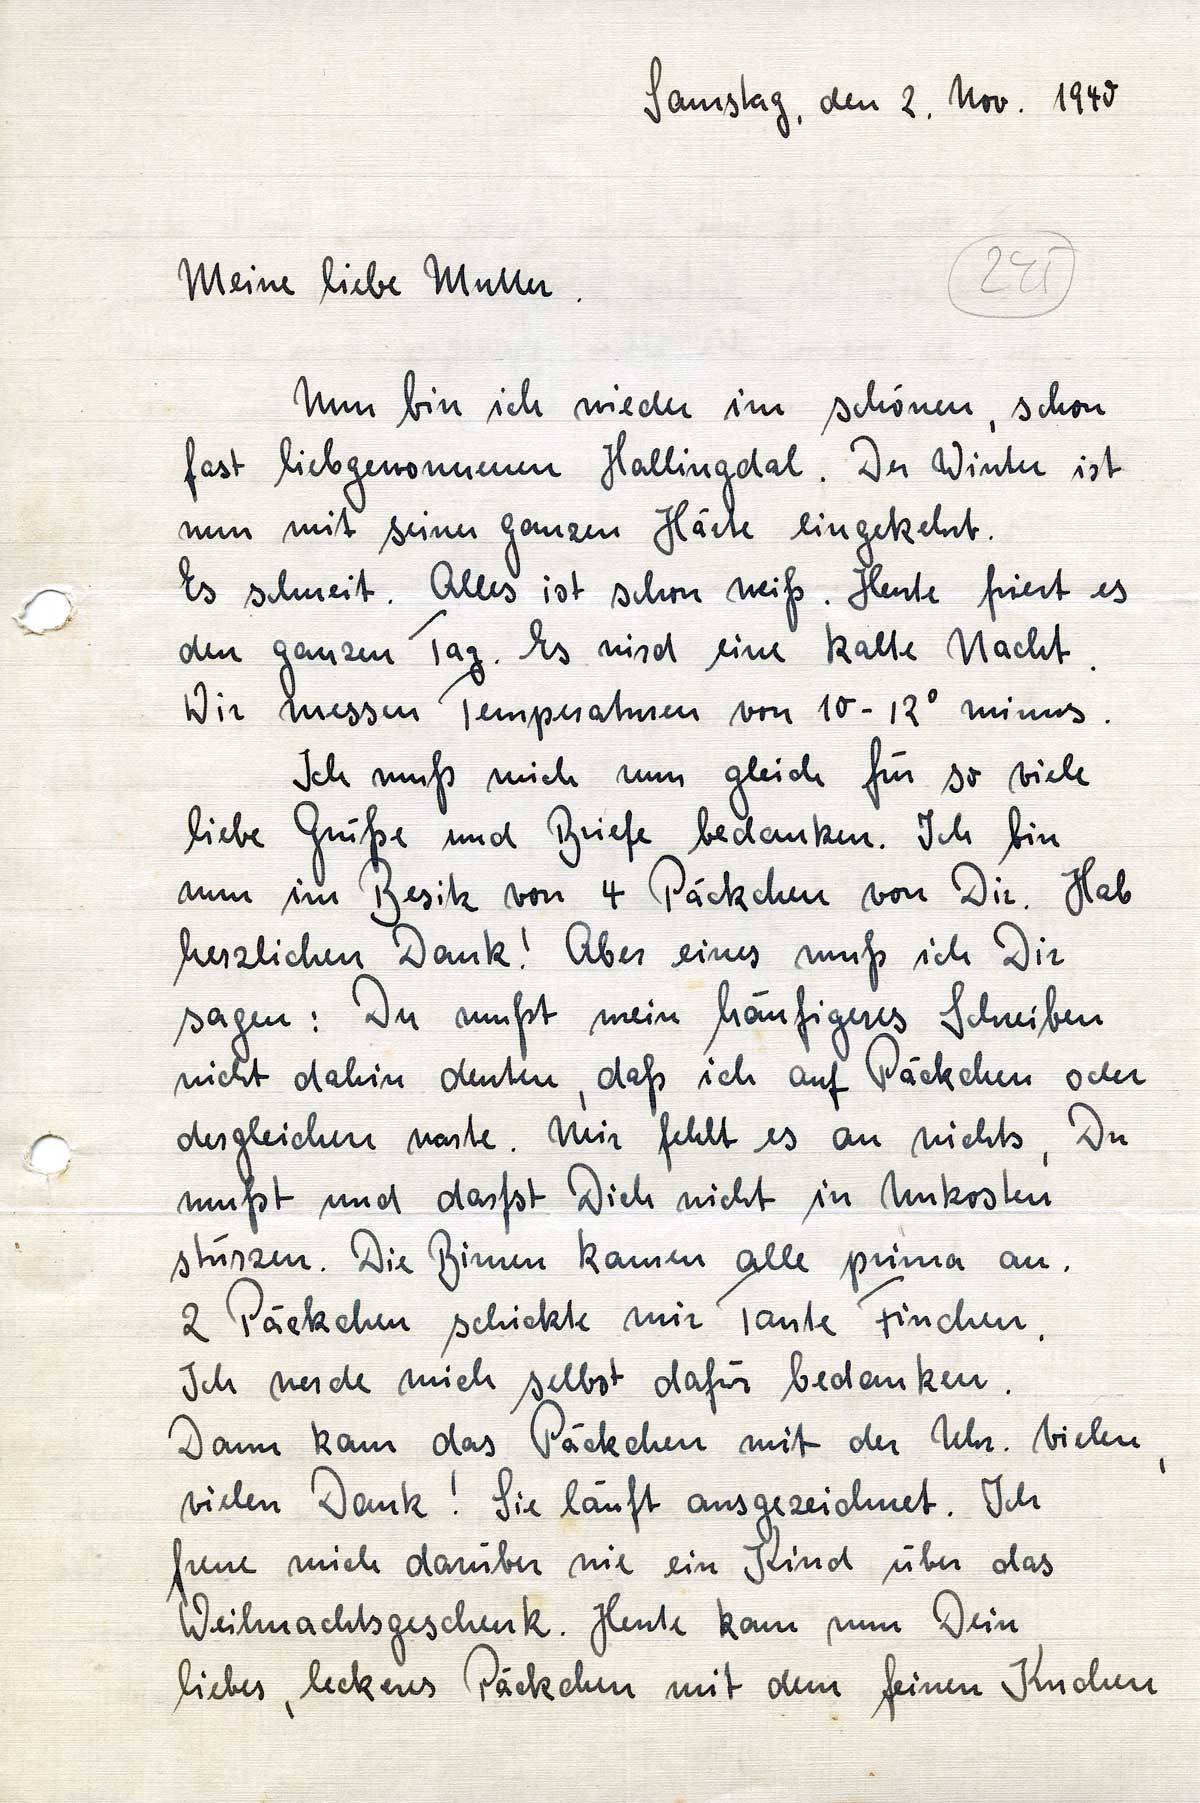 Samstag, den 2. Nov. 1940
Meine liebe Mutter.
Nun bin ich wieder im schönen, schon
fast liebgewonnenen Hallingdal. Der Winter ist
nun mit seiner ganzen Härte eingekehrt.
Es schneit. Alles ist schon weiß. Heute friert es
den ganzen Tag. Es wird eine kalte Nacht.
Wir messen Temperaturen von 10-12° minus.
Ich muß mich nun gleich für so viele
liebe Grüße und Briefe bedanken. Ich bin
nun im Besitz von 4 Päckchen von Dir. Hab
herzlichen Dank! Aber eines muß ich Dir
sagen: Du mußt mein häufigeres Schreiben
nicht dahin deuten, daß ich auf Päckchen oder
dergleichen warte. Mir fehlt es an nichts, Du
mußt und darfst Dich nicht in Unkosten
stürzen. Die Birnen kamen alle prima an.
2 Päckchen schickte mir Tante Finchen.
Ich werde mich selbst dafür bedanken.
Dann kam das Päckchen mit der Uhr. Vielen,
vielen Dank! Sie läuft ausgezeichnet. Ich
freue mich darüber wie ein Kind über das
Weihnachtsgeschenk. Heute kam nun Dein
liebes, leckeres Päckchen mit dem feinen Kuchen